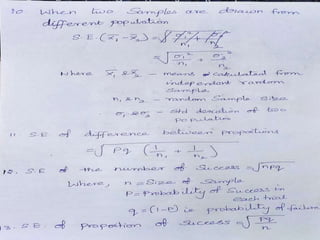 10. When two Samples are drawn from
different population
S.E.(x̄₁ - x̄₂) =
= √ σ₁²/n₁ + σ₂²/n₂
where x̄₁ & x̄₂ - means calculated from
independent random
Sample
n₁ & n₂ - random Sample Size
σ₁ & σ₂ - Std deviation of two
population
11. S.E of difference between proportions
= √ pq (1/n₁ + 1/n₂)
12. S.E of the number of Success = √npq
Where, n = Size of Sample
P = Probability of Success in
each trial
q = (1-P) is probability of failure
13. S.E of Proportion of Success = √ pq/n